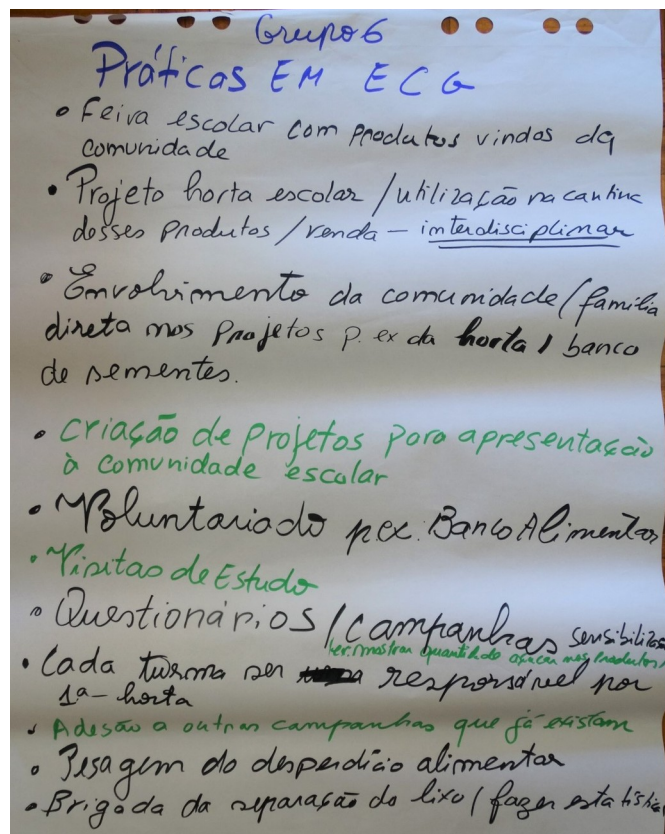 Grupo 6
Práticas EM ECG
• Feira escolar com produtos vindos da
comunidade
• Projeto horta escolar / utilização na cantina
desses produtos / venda – interdisciplinar
• Envolvimento da comunidade / família
direta nos projetos p. ex da horta / banco
de sementes.
• Criação de projetos para apresentação
à comunidade escolar
• Voluntariado p ex: Banco Alimentar
• Visitas de Estudo
• Questionários / campanhas sensibilizaç
mostrar quantid. de açúcar nos produtos
• Cada turma ser responsável por
1ª - horta
• Adesão a outras campanhas que já existam
• Pesagem do desperdício alimentar
• Brigada da separação do lixo / fazer estatística